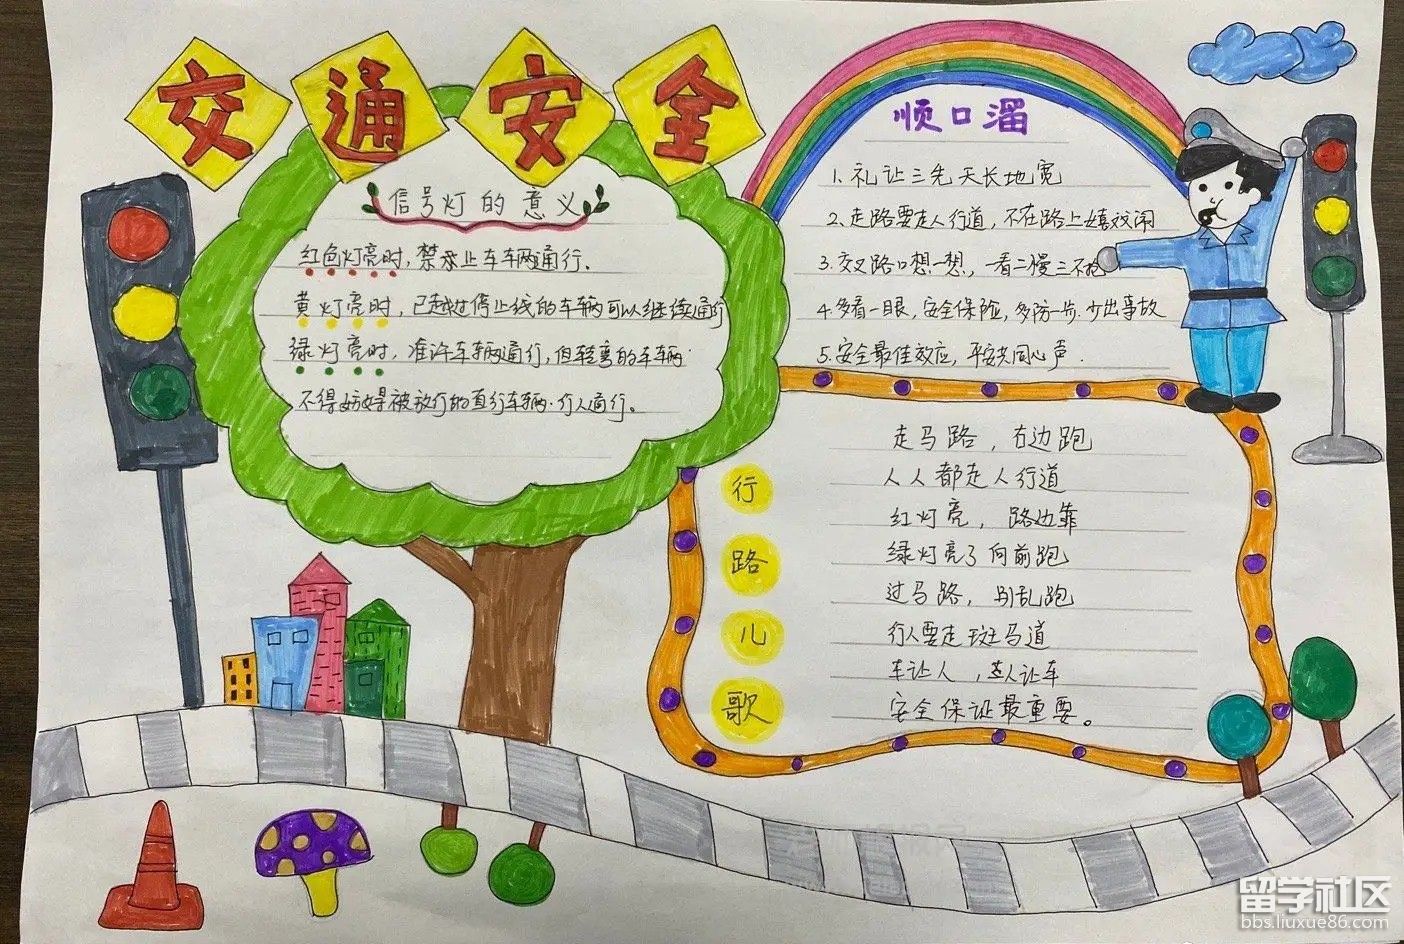 交通安全
信号灯的意义
红色灯亮时，禁示止车车辆通行.
黄灯亮时，已越过停止线的车辆可以继续通行
绿灯亮时，准许车辆通行，但转弯的车辆
不得妨碍被放行的直行车辆.行人通行。
顺口溜
1.礼让三先天长地宽
2.走路要走人行道，不在路上嬉戏闹
3.交叉路口想一想，一看二慢三不抢
4.多看一眼，安全保险，多防一步.少出事故
5.安全最佳效应，平安共同心声.
行路儿歌
走马路，右边跑
人人都走人行道
红灯亮，路边靠
绿灯亮了向前跑
过马路，别乱跑
行人要走斑马道
车让人，人让车
安全保证最重要。
留学社区
bbs.liuxue86.com